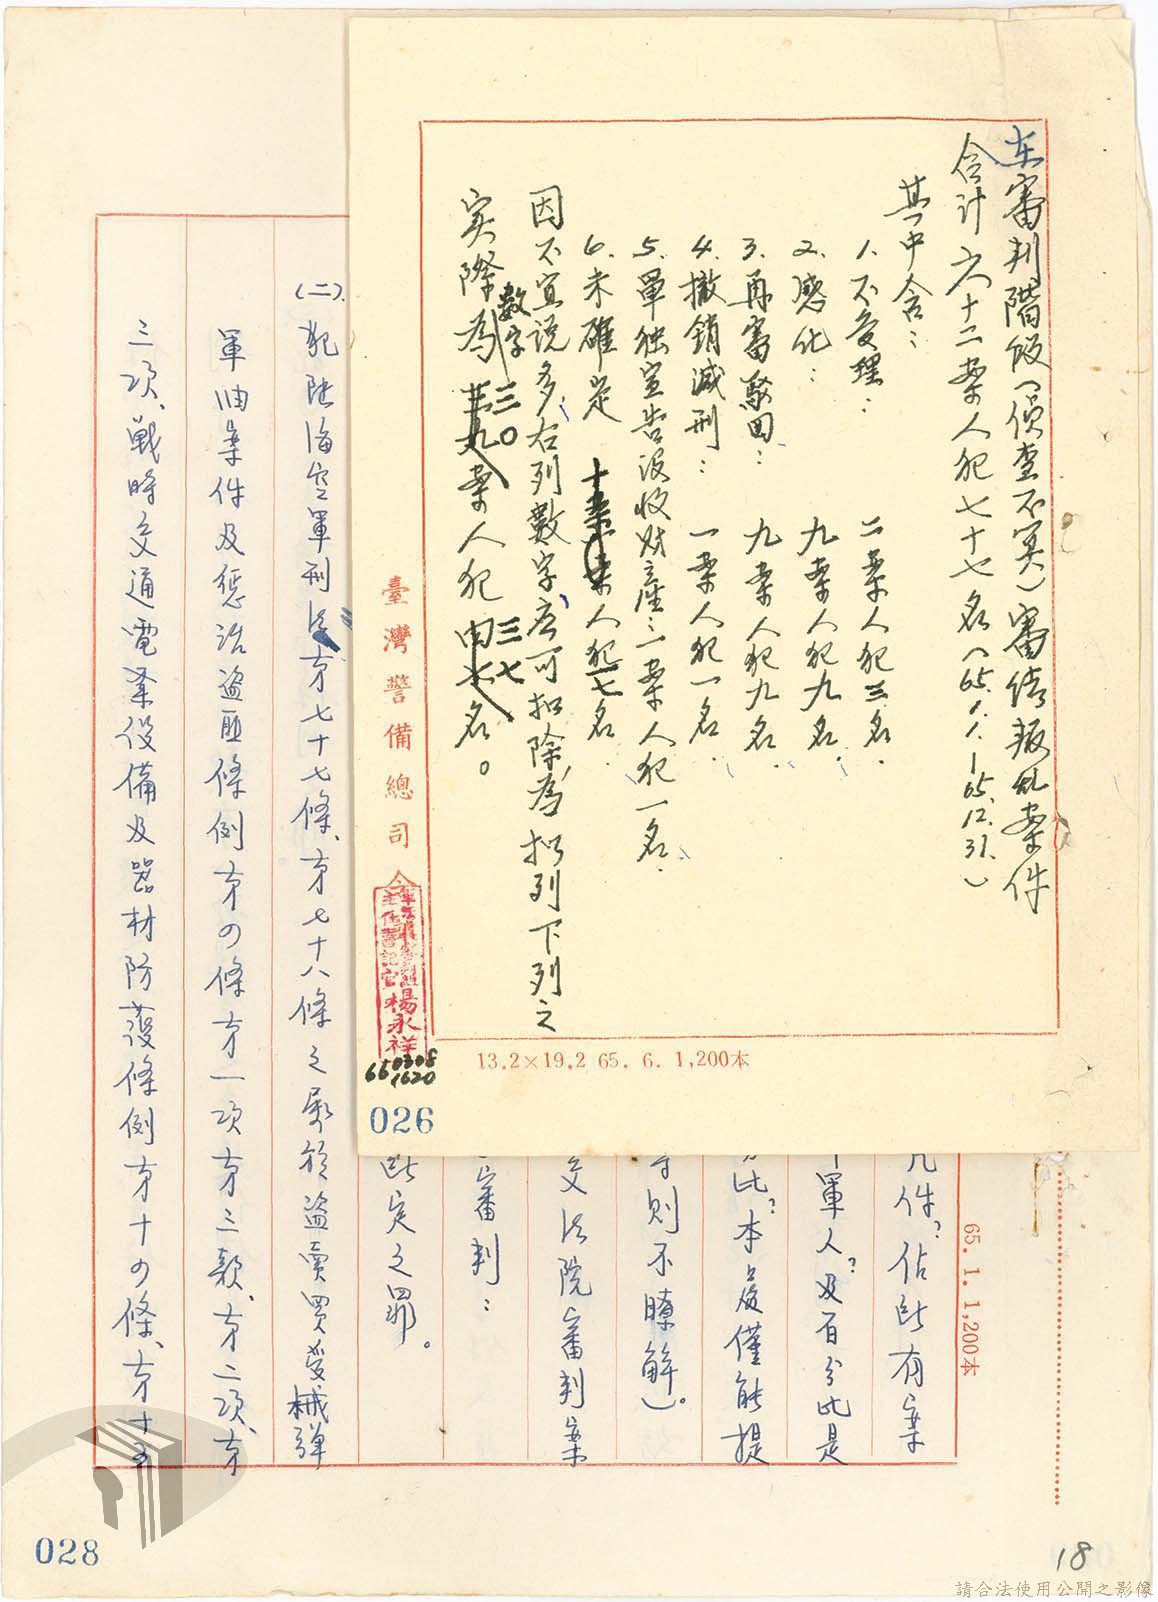 在審判階段(偵查不算)審結叛乱案件
合計六十二案人犯七十七名(65.1.1.—65.12.31.)
其中含:
1.不受理:二案人犯三名.
2.感化:九案人犯九名.
3.再審駁回:九案人犯九名.
4.撤銷減刑:一案人犯一名.
5.單独宣告沒收財產:一案人犯一名.
6.未確定 人犯 七名.
因不宜說多,右列數字應可扣除,為擬列下列之
数字
实際為三〇案人犯三七名。
臺灣警備總司令
主任書記官楊永祥
660308
1620
13.2×19.2 65. 6. 1,200本
026
几件?佔所有案
軍人?及百分比是
比?本處僅能提
則不瞭解)。
交法院審判案
審判:
此定之罪。
(二).犯陸海空軍刑法㐧七十七條、㐧七十八條之屬於盜賣買受械彈
軍油案件及懲治盜匪條例㐧の條㐧一項㐧三款、㐧二項、㐧
三項、戰時交通電業設備及器材防護條例㐧十の條、㐧十五
65. 1. 1,200本
028
18
請合法使用公開之影像